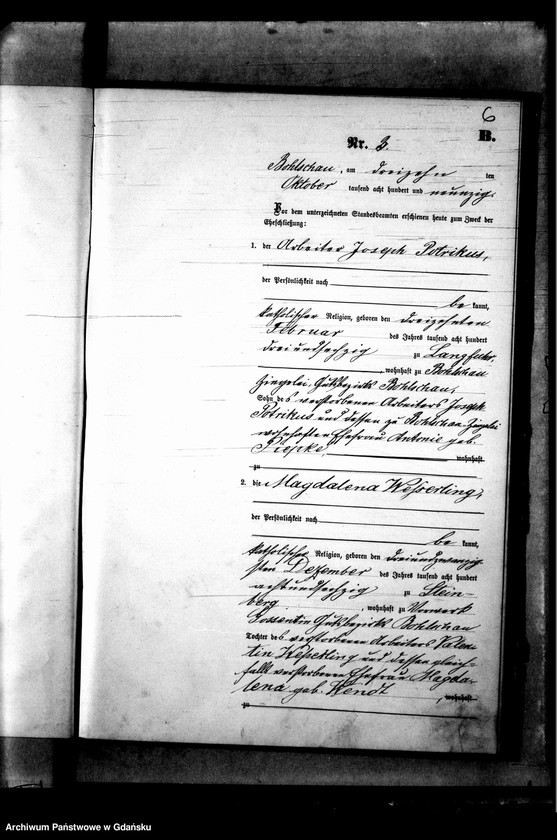 6
B.
Nr. 3
Bohlschau, am dreizehn ten
Oktober tausend acht hundert und neunzig.
Vor dem unterzeichneten Standesbeamten erschienen heute zum Zweck der
Eheschließung:
1. der Arbeiter Joseph Potrikus,
der Persönlichkeit nach
be kannt,
katholischer Religion, geboren den dreizehnten
Februar des Jahres tausend acht hundert
dreiundsechzig zu Langfuhr,
, wohnhaft zu Bohlschau
Ziegelei, Gutsbezirks Bohlschau,
Sohn des verstorbenen Arbeiters Joseph
Potrikus und dessen zu Bohlschau Ziegelei
wohnhaften Ehefrau Antonie geb.
wohnhaft
zu
2. die Magdalena Kesserling,
der Persönlichkeit nach
be kannt,
katholischer Religion, geboren den dreiundzwanzig-
sten Dezember des Jahres tausend acht hundert
achtundsechzig zu Stein-
berg, wohnhaft zu Vorwerk
Gutsbezirks Bohlschau
Tochter des verstorbenen Arbeiters Valen-
tin Kesserling und dessen gleich-
falls verstorbenen Ehefrau Magda-
lena geb. Kendt, wohnhaft
zu
Archiwum Państwowe w Gdańsku